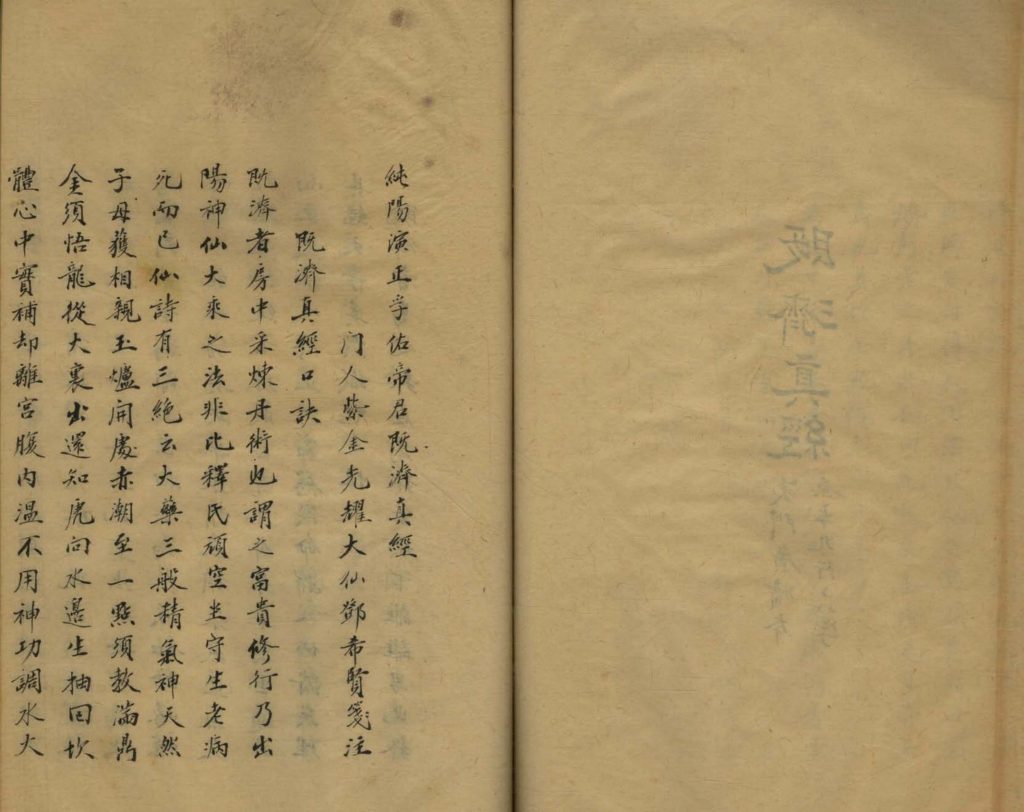 純陽演正孚佑帝君既濟真經
門人紫金光耀大仙鄧希賢箋注
既濟真經口訣
既濟者房中采煉丹術也謂之富貴修行乃出
陽神仙大乘之法非比釋氏頑空坐守生老病
死而已仙詩有三絕云大藥三般精氣神天然
子母獲相親玉爐開處赤潮至一點須教滿鼎
金須悟龍從火裏出還知虎向水邊生抽回坎
體心中實補却離宮腹內温不用神功調水火
既濟真經